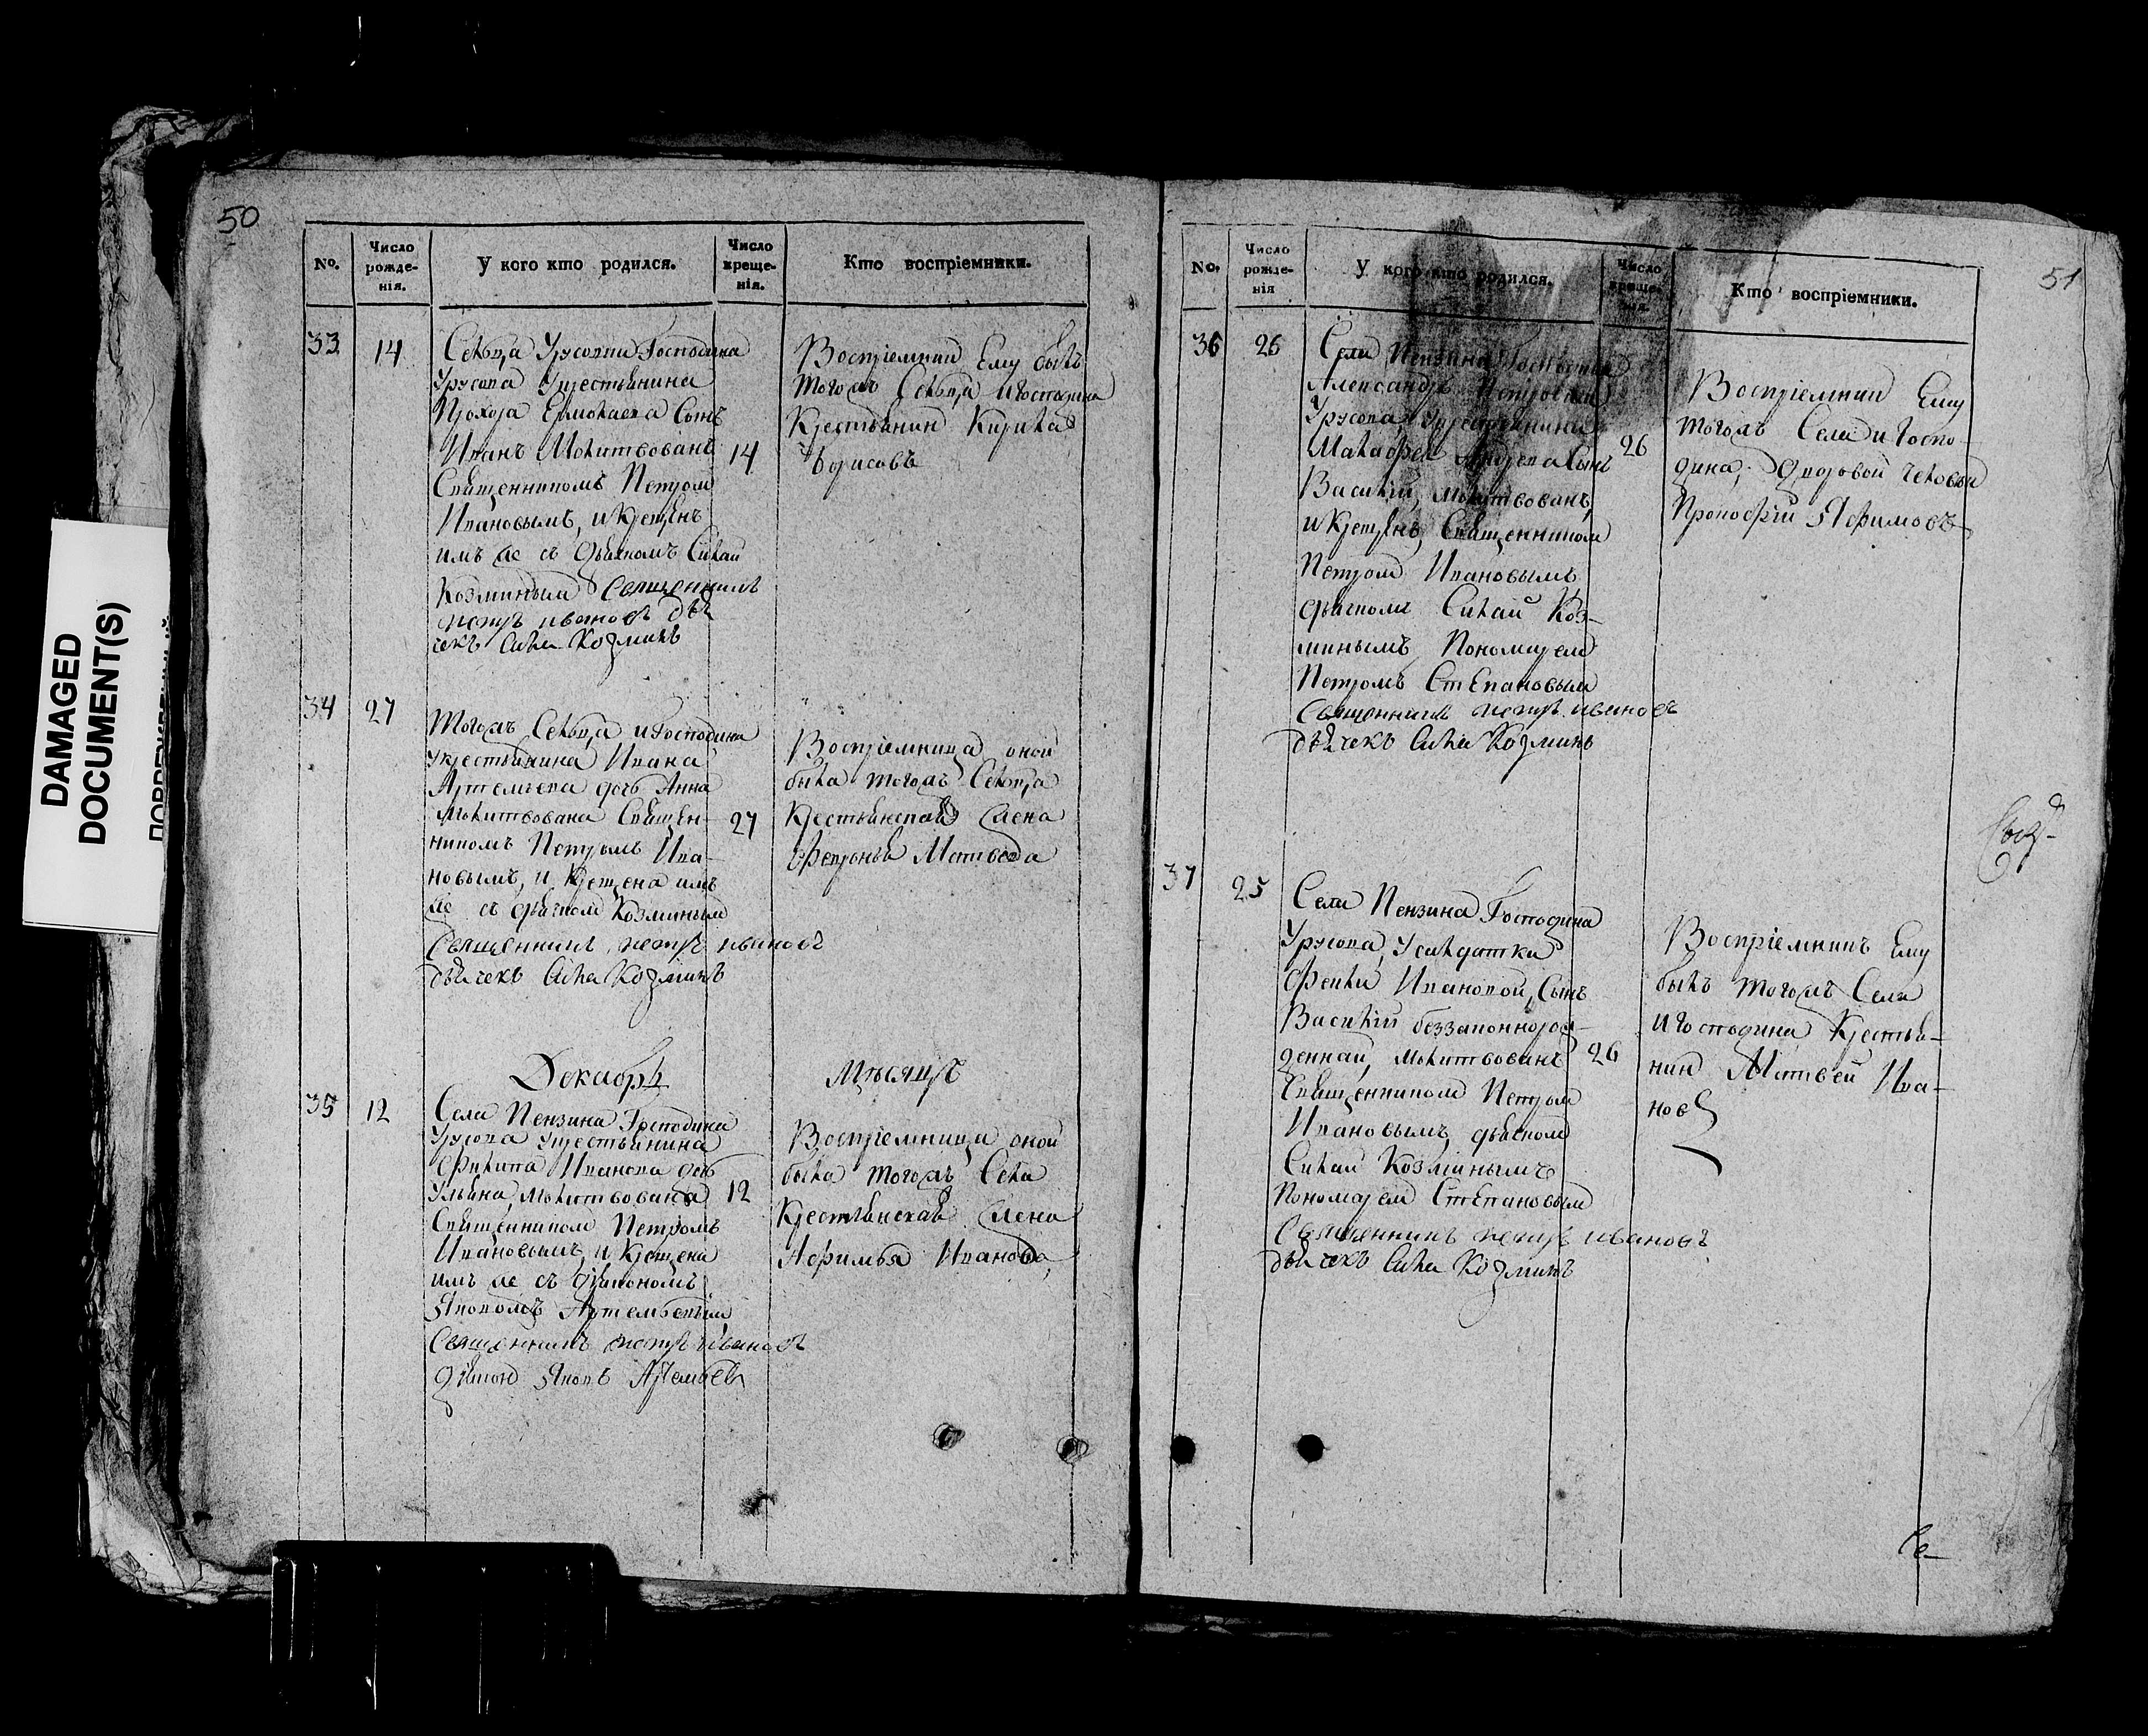 DAMAGED
DOCUMENT(S)
50
No.
Число рожде- нія.
У кого кто родился.
Число креще- нія.
Кто воспріемники.
33
14
Сельца Урусовки Господина
Урусова Укрестьянина
Прохора Ермолаева Сынъ
Иванъ Молитвованъ
Священникомъ Петром
Ивановымъ, и Крещенъ
имъ же съ дьячкомъ Силай
Козминымъ Священникъ
петръ ивановъ дья
чекъ Сила Козминъ
14
Воспріемник Ему былъ
тогожъ Сельца и Господина
Крестьянин Кирила
Борисовъ
34
27
Тогожъ Сельца и Господина
укрестьянина Ивана
Артемьева дочь Анна
Молитвована Священ-
никомъ Петромъ Ива-
новымъ, и Крещена имъ
же съ дьячком Козминым
Священникъ петръ ивановъ
дьячекъ Сила Козминъ
27
Воспріемница оной
была тогожъ Сельца
Крестьянская Жена
Февронья Матвеева
Декабрь Мѣсяцъ
35
12
Села Пензина Господина
Урусова Укрестьянина
Филипа Иванова дочь
Ульяна, молитвована
Священником Петромъ
Ивановымъ, и Крещена
имъ же съ діакономъ
Яковомъ Артемьевым
Священникъ петръ ивановъ
діакон Яковъ Артемьевъ
12
Воспріемница оной
была тогожъ Села
Крестьянская Жена
Афимья Иванова
51
No.
Число рожде- нія
У кого кто родился.
Число креще- нія.
Кто воспріемники.
36
26
Села Пензина Господина
Александра Петровича
Урусова Укрестьянина
Андреева Сынъ
Василій, молитвованъ,
и Крещенъ, Священником
Петром Ивановымъ
дьячкомъ Силай Коз-
минымъ Пономарем
Петромъ Степановым
Священникъ петръ ивановъ
дьячекъ Сила Козминъ
26
Воспріемник Ему
тогожъ Села и Госпо-
дина, Дворовой человек
Прокофій Яфимовъ
37
25
Села Пензина Господина
Урусова, Усалдатки
Феклы Ивановой, Сынъ
Василій беззаконнорож-
денной, молитвованъ
Священником Петром
Ивановымъ, дьячком
Силай Козминымъ
Пономарем Степановым
Священникъ петръ ивановъ
дьячекъ Сила Козминъ
26
Воспріемникъ Ему
былъ тогожъ Села
и Господина Крестья-
нин Матвей Ива-
нов
Се-